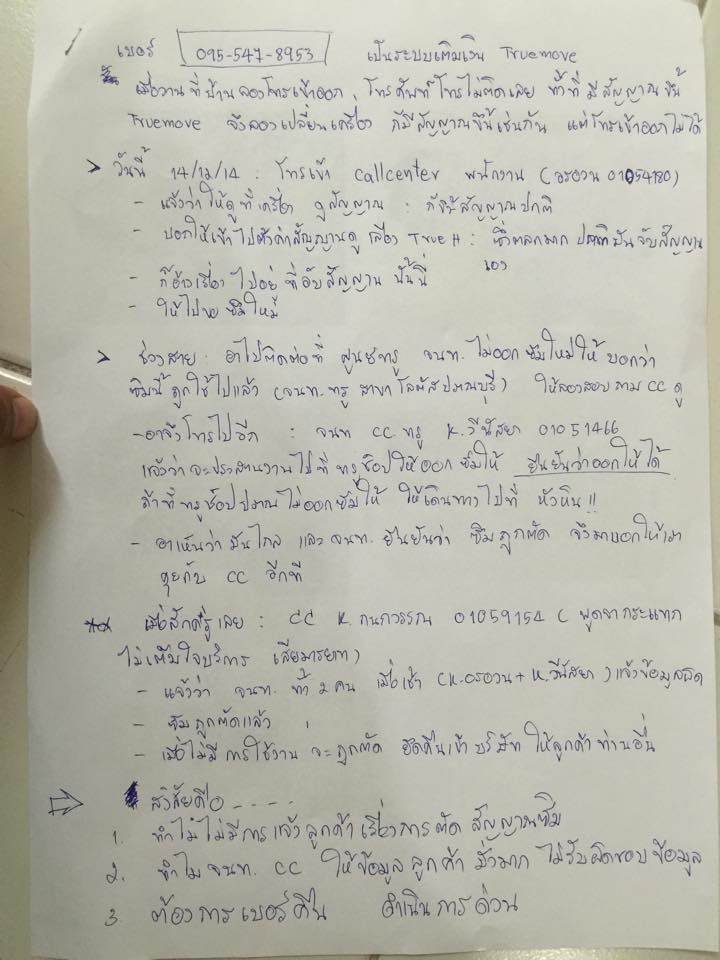 เบอร์ 095-547-8953 เป็นระบบเติมเงิน Truemove
เมื่อวานที่บ้านลองโทรเข้าออก, โทรศัพท์โทรไม่ติดเลย ทั้งที่มีสัญญาณขึ้น
Truemove จึงลองเปลี่ยนเครื่อง ก็มีสัญญาณขึ้นเช่นกัน แต่โทรเข้าออกไม่ได้
> วันนี้ 14/12/14 : โทรเข้า callcenter พนักงาน (อรอวน 01054180)
- แจ้งว่าให้ดูที่เครื่อง ดูสัญญาณ : ก็ขึ้นสัญญาณปกติ
- บอกให้เข้าไปตั้งค่าสัญญาณดู เลือก True H : ซึ่งตลกมาก ปกติมันจับสัญญาณ
เอง
- ก็อ้างเรื่อง ไปอยู่ที่อับสัญญาน นั้นนี่
- ให้ไปขอซิมใหม่
> ช่วงสาย : อาไปติดต่อที่ศูนย์ทรู จนท. ไม่ออกซิมใหม่ให้ บอกว่า
ซิมนี้ถูกใช้ไปแล้ว (จนท. ทรู สาขาโลตัสปราณบุรี) ให้ลองสอบถาม CC ดู
- อาจึงโทรไปอีก : จนท CC ทรู K. วีนัสยา 01051466
แจ้งว่าจะประสานงานไปที่ทรูช็อปให้ออกซิมให้ ยืนยันว่าออกให้ได้
ถ้าที่ทรูช็อปปราณไม่ออกซิมให้ ให้เดินทางไปที่ หัวหิน!!
- อาเห็นว่ามันไกล และจนท. ยืนยันว่า ซิมถูกตัด จึงมาบอกให้เรา
คุยกับ CC อีกที
** เมื่อสักครู่เลย : CC K. กนกวรรณ 01059154 (พูดจากระแทก
ไม่เต็มใจบริการ เสียมารยาท)
- แจ้งว่า จนท. ทั้ง 2 คน เมื่อเช้า (K.อรอวน + K.วีนัสยา) แจ้งข้อมูลผิด
- ซิมถูกตัดแล้ว
- เมื่อไม่มีการใช้งาน จะถูกตัด ยึดคืนเข้าบริษัท ให้ลูกค้าท่านอื่น
⇒ สงสัยคือ - - - - -
1. ทำไมไม่มีการแจ้งลูกค้า เรื่องการตัดสัญญาณซิม
2. ทำไม จนท. CC ให้ข้อมูลลูกค้า มั่วมาก ไม่รับผิดชอบข้อมูล
3. ต้องการเบอร์คืน ดำเนินการด่วน